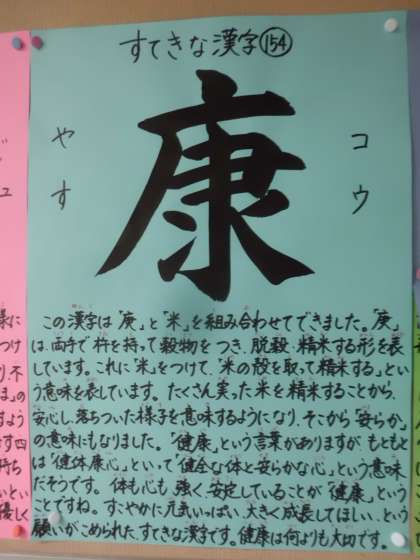 すてきな漢字154
康
コウ
やす
この漢字は「庚」と「米」を組み合わせてできました。「庚」
は、両手で杵を持って穀物をつき、脱穀・精米する形を表
しています。これに「米」をつけて、「米の殻を取って精米する」とい
う意味を表しています。たくさん実った米を精米することから、
安心し、落ちついた様子を意味するようになり、そこから「安らか」
の意味にもなりました。「健康」という言葉がありますが、もともと
は「健体康心」といって「健全な体と安らかな心」という意味
だそうです。体も心も強く、安定していることが「健康」という
ことですね。すこやかに元気いっぱい、大きく成長してほしい、という
願いがこめられた、すてきな漢字です。健康は何よりも大切です。